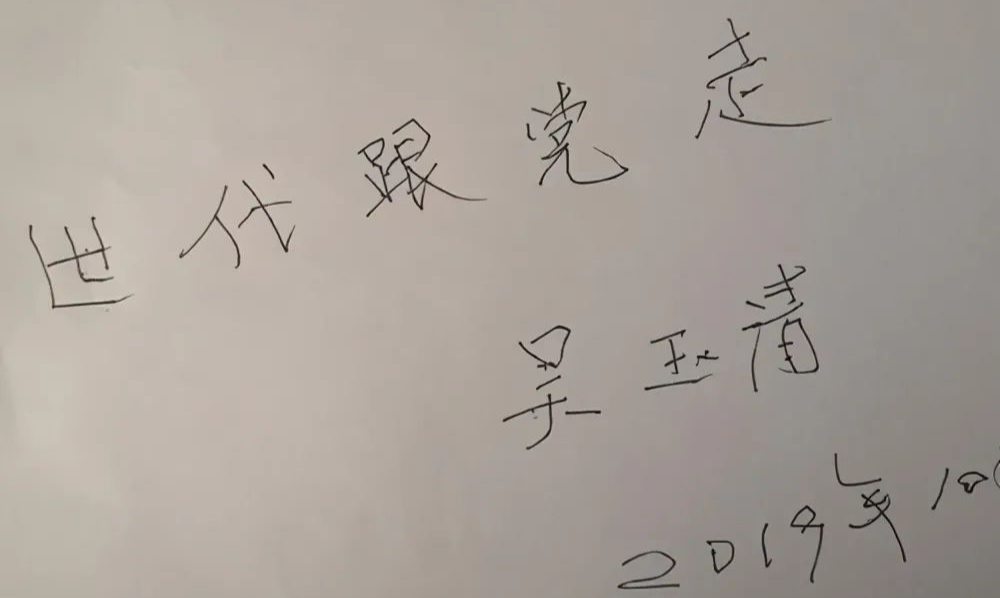 世代跟党走
吴玉清
2019年10